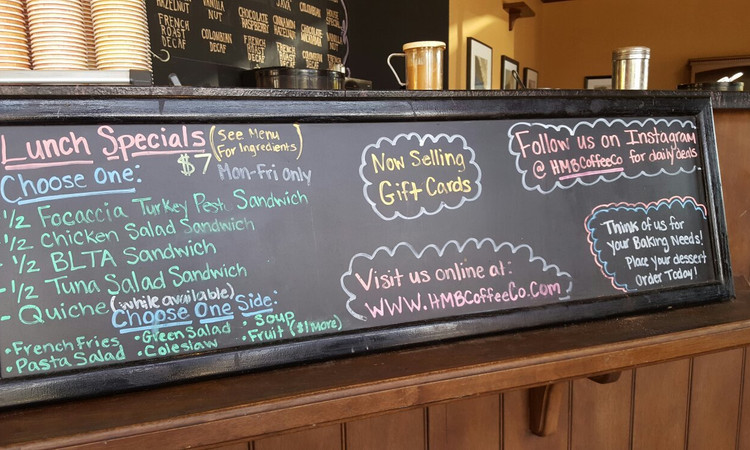 HAZELNUT
FRENCH
ROAST
DECAF
VANILLA
NUT
COLOMBIAN
DECAF
CHOCOLATE
RASPBERRY
FRENCH
ROAST
DECAF
JAVA
CINNAMON
HAZELNUT
COLOMBIAN
CHOCOLATE
DECAF
Lunch Specials
(See Menu
For Ingredients)
$7
Mon-Fri only
Choose One:
1/2 Focaccia Turkey Pesto Sandwich
1/2 Chicken Salad Sandwich
- 1/2 BLTA Sandwich
- 1/2 Tuna Salad Sandwich
- Quiche (while available)
Choose One Side:
• French Fries
• Pasta Salad
• Green Salad
• Coleslaw
• Soup
• Fruit ($1 More)
Now Selling
Gift Cards
Visit us online at:
WWW.HMBCoffeeCo.Com
Follow us on Instagram
@ HMBCoffeeCo for daily deals
Think of us for
your Baking Needs!
Place your dessert
Order Today!